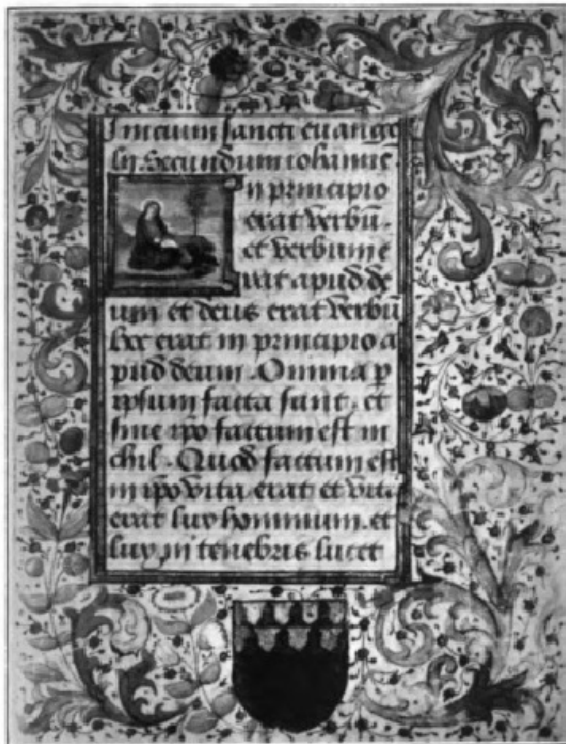 Inicium sancti euange
lii Secundum iohannē.
n principio
erat verbū.
et verbum e
rat apud de
um et deus erat verbū
hec erat in principio a
pud deum. Omnia p̄
ipsum facta sunt. et
sine ipō factum est ni
chil. Quod factum est
in ipō vita erat et vita
erat lux hominum. et
lux in tenebris lucet